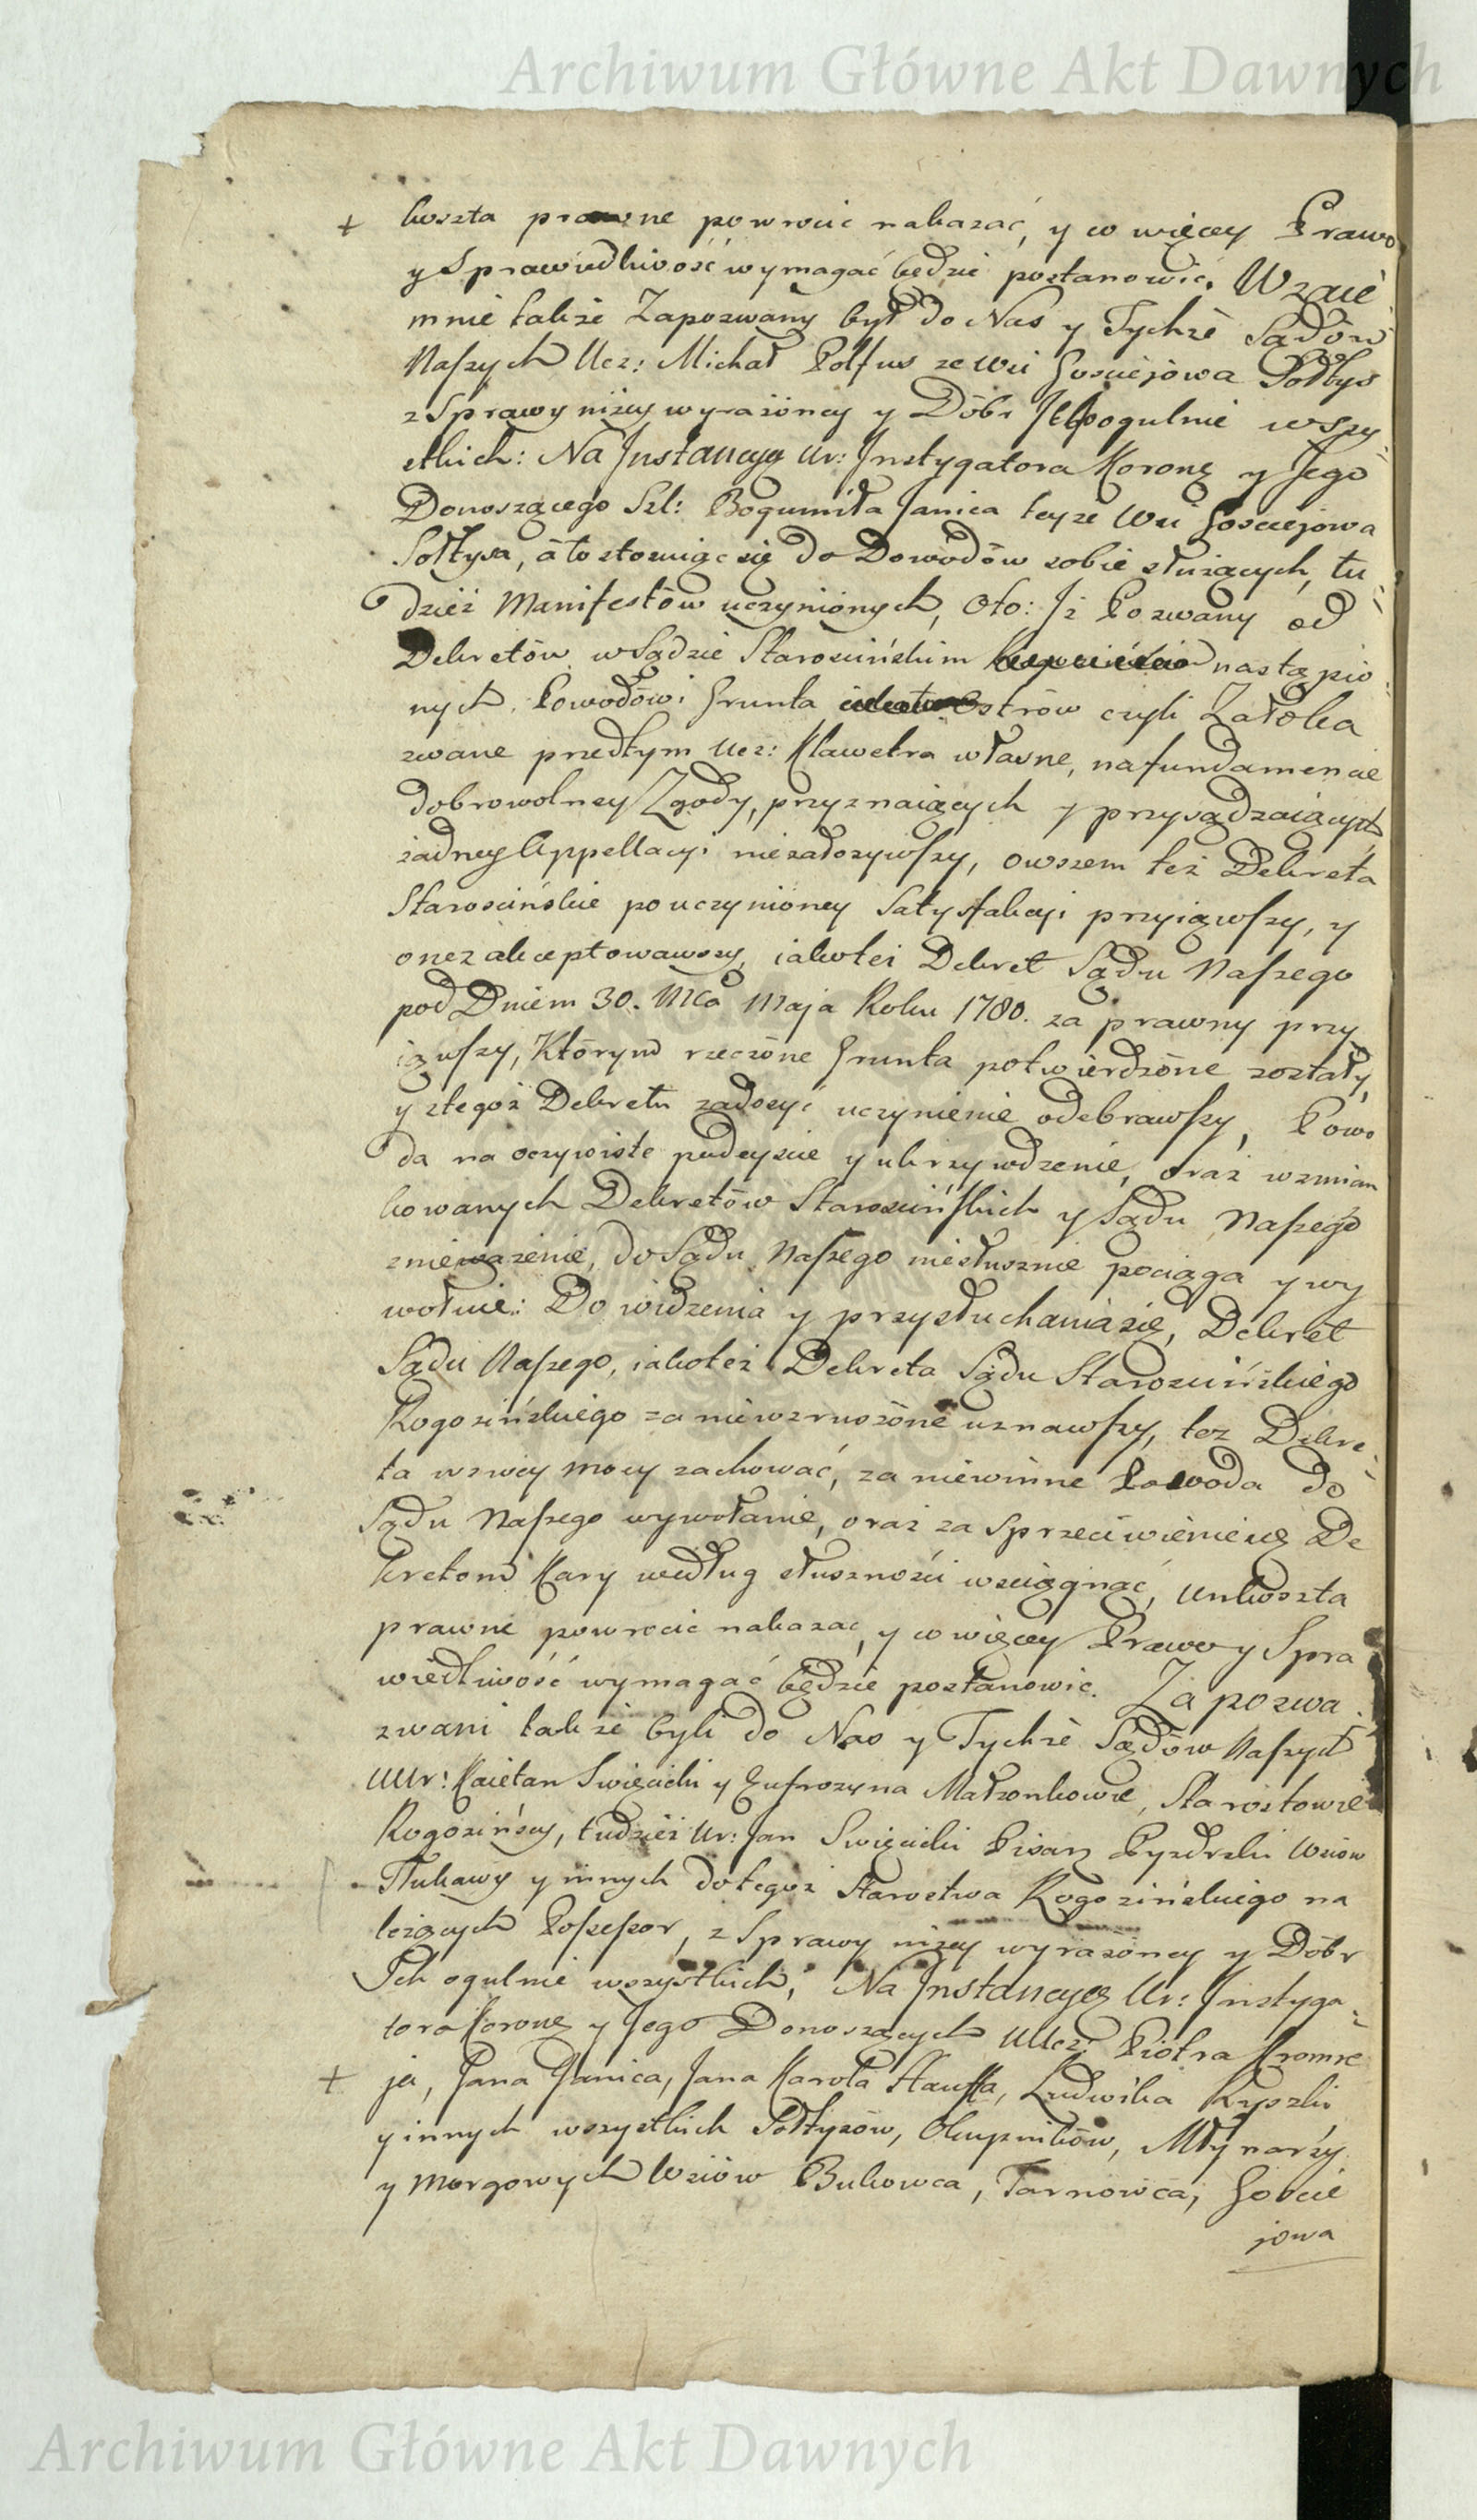 Archiwum Główne Akt Dawnych
+ koszta prawne powrocic nakazać, y co więcey Prawo
y Sprawiedliwość wymagać będzie postanowić. Wzaie
mnie także Zapozwany był do Nas y Tychże Sądów
Naszych Ucz: Michał Polfus ze Wsi Gościejowa Sołtys
z Sprawy niżey wyrażoney y Dóbr Jego ogulnie wszy
stkich: Na Jnstancyą Ur: Jnstygatora Koronę y Jego
Donoszącego Szl: Bogumiła Janica teyże Wsi Gosciejowa
Sołtysa, á to stosuiąc się do Dowodów sobie służących, tu
dzież Manifestów uczynionych, Oto: Jż Pozwany od
Dekretów w Sądzie Starościńskim nastąpio
nych, Powodowi Grunta Ostrów czyli Zatoka
zwane przedtym Ucz: Klawetra własne, na fundamencie
dobrowolney Zgody, przyznaiących y przysądzaiących
żadney Appellacyi niezałozywszy, owszem też Dekreta
Starościńskie po uczynioney Satysfakcyi przyiąwszy, y
onez akceptowawszy, iakoteż Dekret Sądu Naszego
pod Dniem 30. Mca Maja Roku 1780. za prawny przy
iąwszy, Którym rzeczone Grunta potwierdzone zostały,
y z tegoż Dekretu zadosyć uczynienie odebrawszy, Powo
da na oczywiste podeyscie y ukrzywdzenie, oraz wzmian
kowanych Dekretów Starościńskich y Sądu Naszego
znieważenie, do Sądu Naszego niesłusznie pociąga y wy
wołuie: Do widzenia y przysłuchania się, Dekret
Sądu Naszego, iakoteż Dekreta Sądu Starościńskiego
Rogozińskiego za niewzruszone uznawszy, też Dekre
ta w swey mocy zachować, za niewinne Powoda do
Sądu Naszego wywołanie, oraz za sprzeciwienie się De
kretom Kary według słuszności wsciągnąć,
prawne powrocic nakazac, y co więcey Prawo y Spra
wiedliwość wymagać będzie postanowic. Zapozwa
zwani także byli do Nas y Tychże Sądów Naszych
UUr: Kaietan Swięcicki y Eufrozyna Małzonkowie, Starostowie
Rogozińscy, tudzież Ur: Jan Swięcicki Pisarz Pyzdrski Wsiow
Tłukawy y innych do tegoż Starostwa Rogozińskiego na
leżących Possessor, z Sprawy niżey wyrażoney y Dóbr
Jch ogulnie wszystkich; Na Jnstancyę Ur: Jnstyga
tora Koronę y Jego Donoszących UUcz: Piotra Kromre
+ ja, Jana Janica, Jana Karola Stauffa, Ludwika Kyszki
y innych wszystkich Sołtysów, Okupników, Młynarzy
y Morgowych Wsiow Bukowca, Tarnowca, Goscie
jowa
Archiwum Główne Akt Dawnych